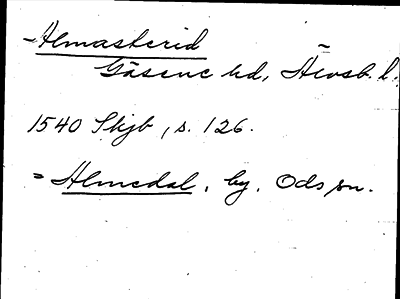 Almasterid
Gäsene hd, Älvsb. l.
1540 Skjb, s. 126.
= Almedal, by, Ods sn.